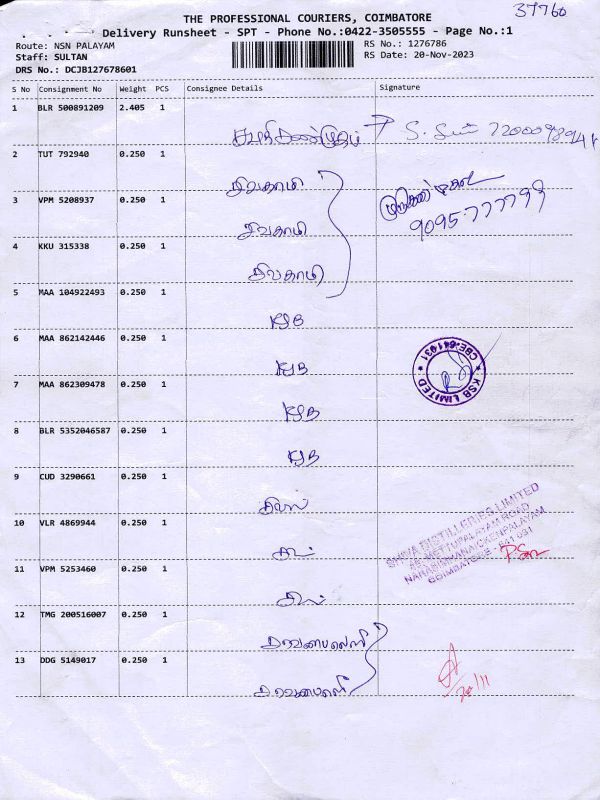 37760
THE PROFESSIONAL COURIERS, COIMBATORE
Delivery Runsheet - SPT - Phone No.:0422-3505555 - Page No.:1
Route: NSN PALAYAM
Staff: SULTAN
DRS No.: DCJB127678601
RS No.: 1276786
RS Date: 20-Nov-2023
S No Consignment No Weight PCS Consignee Details Signature
1 BLR 500891209 2.405 1
2 TUT 792940 0.250 1
சிவகாமி
3 VPM 5208937 0.250 1
சிவகாமி
9095777799
4 KKU 315338 0.250 1
சிவகாமி
5 MAA 104922493 0.250 1
KSB
6 MAA 862142446 0.250 1
KSB
7 MAA 862309478 0.250 1
KSB
KSB LIMITED
CBE-641031
8 BLR 5352046587 0.250 1
KSB
9 CUD 3290661 0.250 1
10 VLR 4869944 0.250 1
SHIVA DISTILLERIES LIMITED
METTUPALAYAM ROAD
NARASIMHANAICKENPALAYAM
COIMBATORE - 641 031
11 VPM 5253460 0.250 1
12 TMG 200516007 0.250 1
13 DDG 5149017 0.250 1
20/11